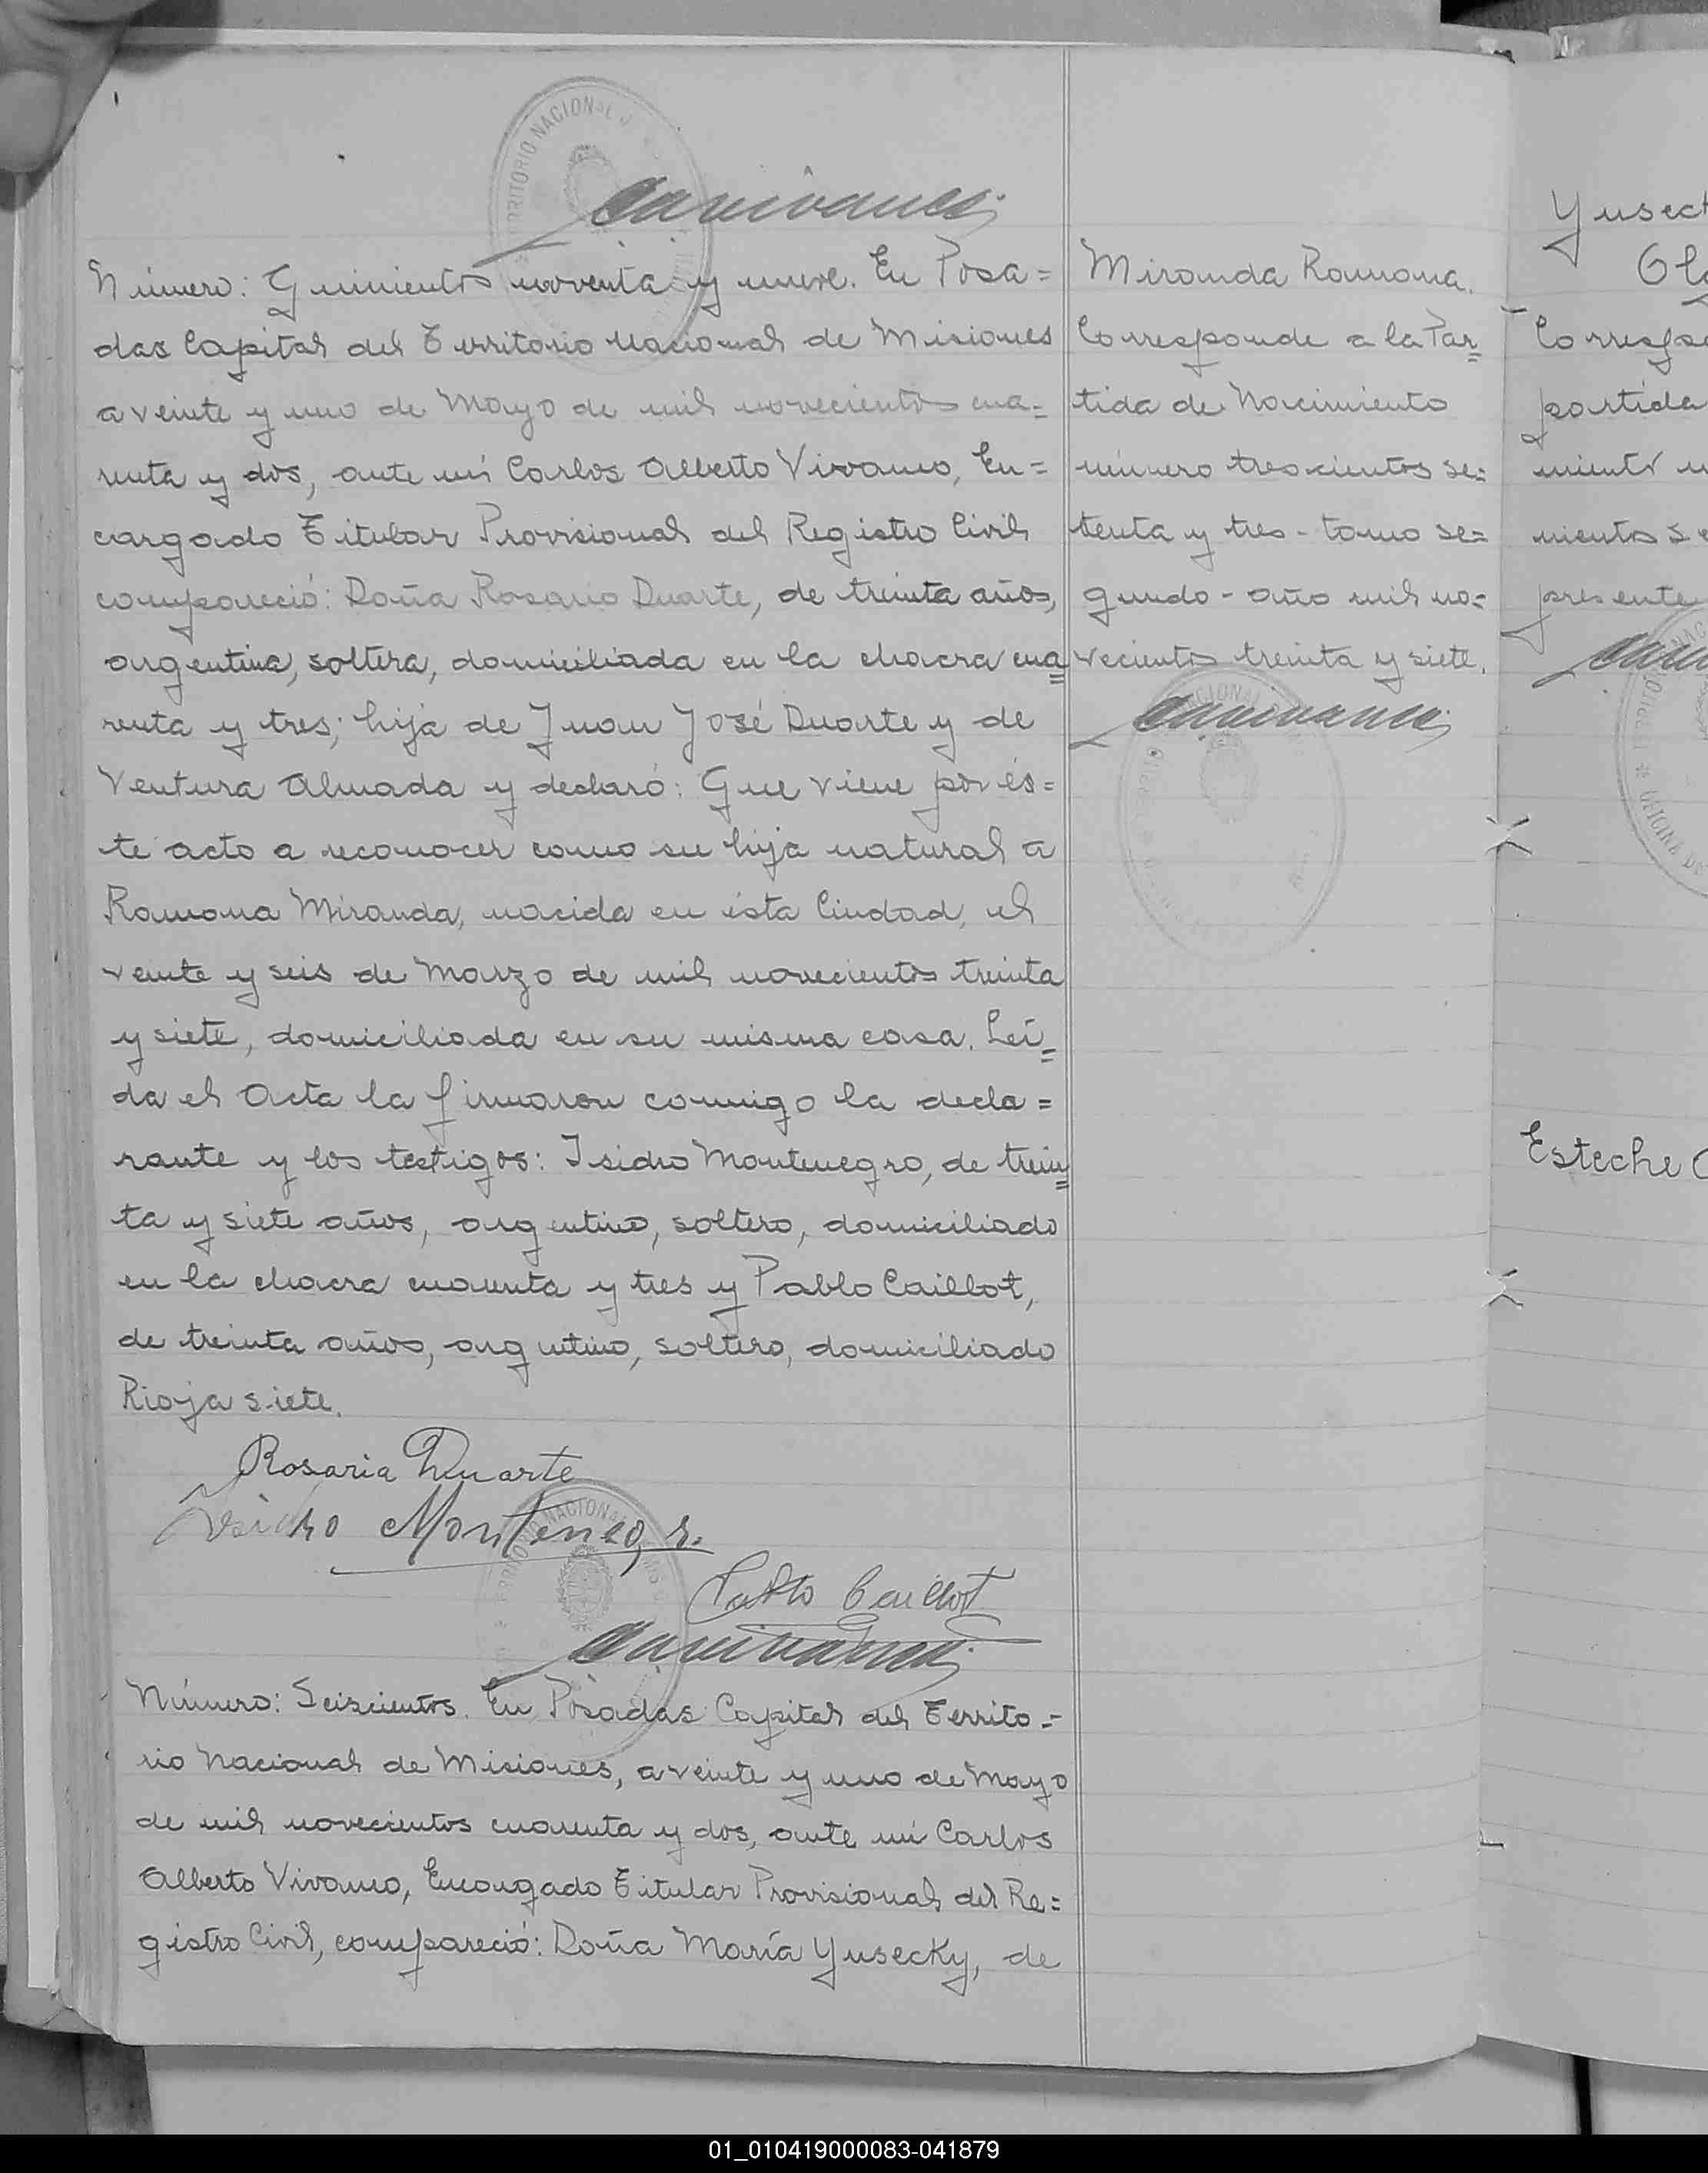 Número: Quinientos noventa y nueve. En Posa=
das Capital del Territorio Nacional de Misiones
a veinte y uno de Mayo de mil novecientos cua=
renta y dos, ante mí Carlos Alberto Vivanco, En=
cargado Titular Provisional del Registro Civil
compareció: Doña Rosario Duarte, de treinta años,
argentina, soltera, domiciliada en la chacra cua=
renta y tres; hija de Juan José Duarte y de
Ventura Almada y declaró: Que viene por és=
te acto a reconocer como su hija natural a
Ramona Miranda, nacida en ésta Ciudad, el
veinte y seis de Marzo de mil novecientos treinta
y siete, domiciliada en su misma casa. Leí=
da el Acta la firmaron conmigo la decla=
rante y los testigos: Isidro Montenegro, de trein=
ta y siete años, argentino, soltero, domiciliado
en la chacra cuarenta y tres y Pablo Caillot,
de treinta años, argentino, soltero, domiciliado
Rioja siete.
Rosaria Duarte
Isidro Montenegr.
Pablo Caillot
Número: Seiscientos. En Posadas Capital del Territo=
rio Nacional de Misiones, a veinte y uno de Mayo
de mil novecientos cuarenta y dos, ante mí Carlos
Alberto Vivanco, Encargado Titular Provisional del Re=
gistro Civil, compareció: Doña María Yusecky, de
Miranda Ramona.
Corresponde a la Par=
tida de Nacimiento
número trescientos se=
tenta y tres - tomo se=
gundo - año mil no=
vecientos treinta y siete.
Yusec
Ol
Corresp
partida
miento
presente
Esteche
01_010419000083-041879